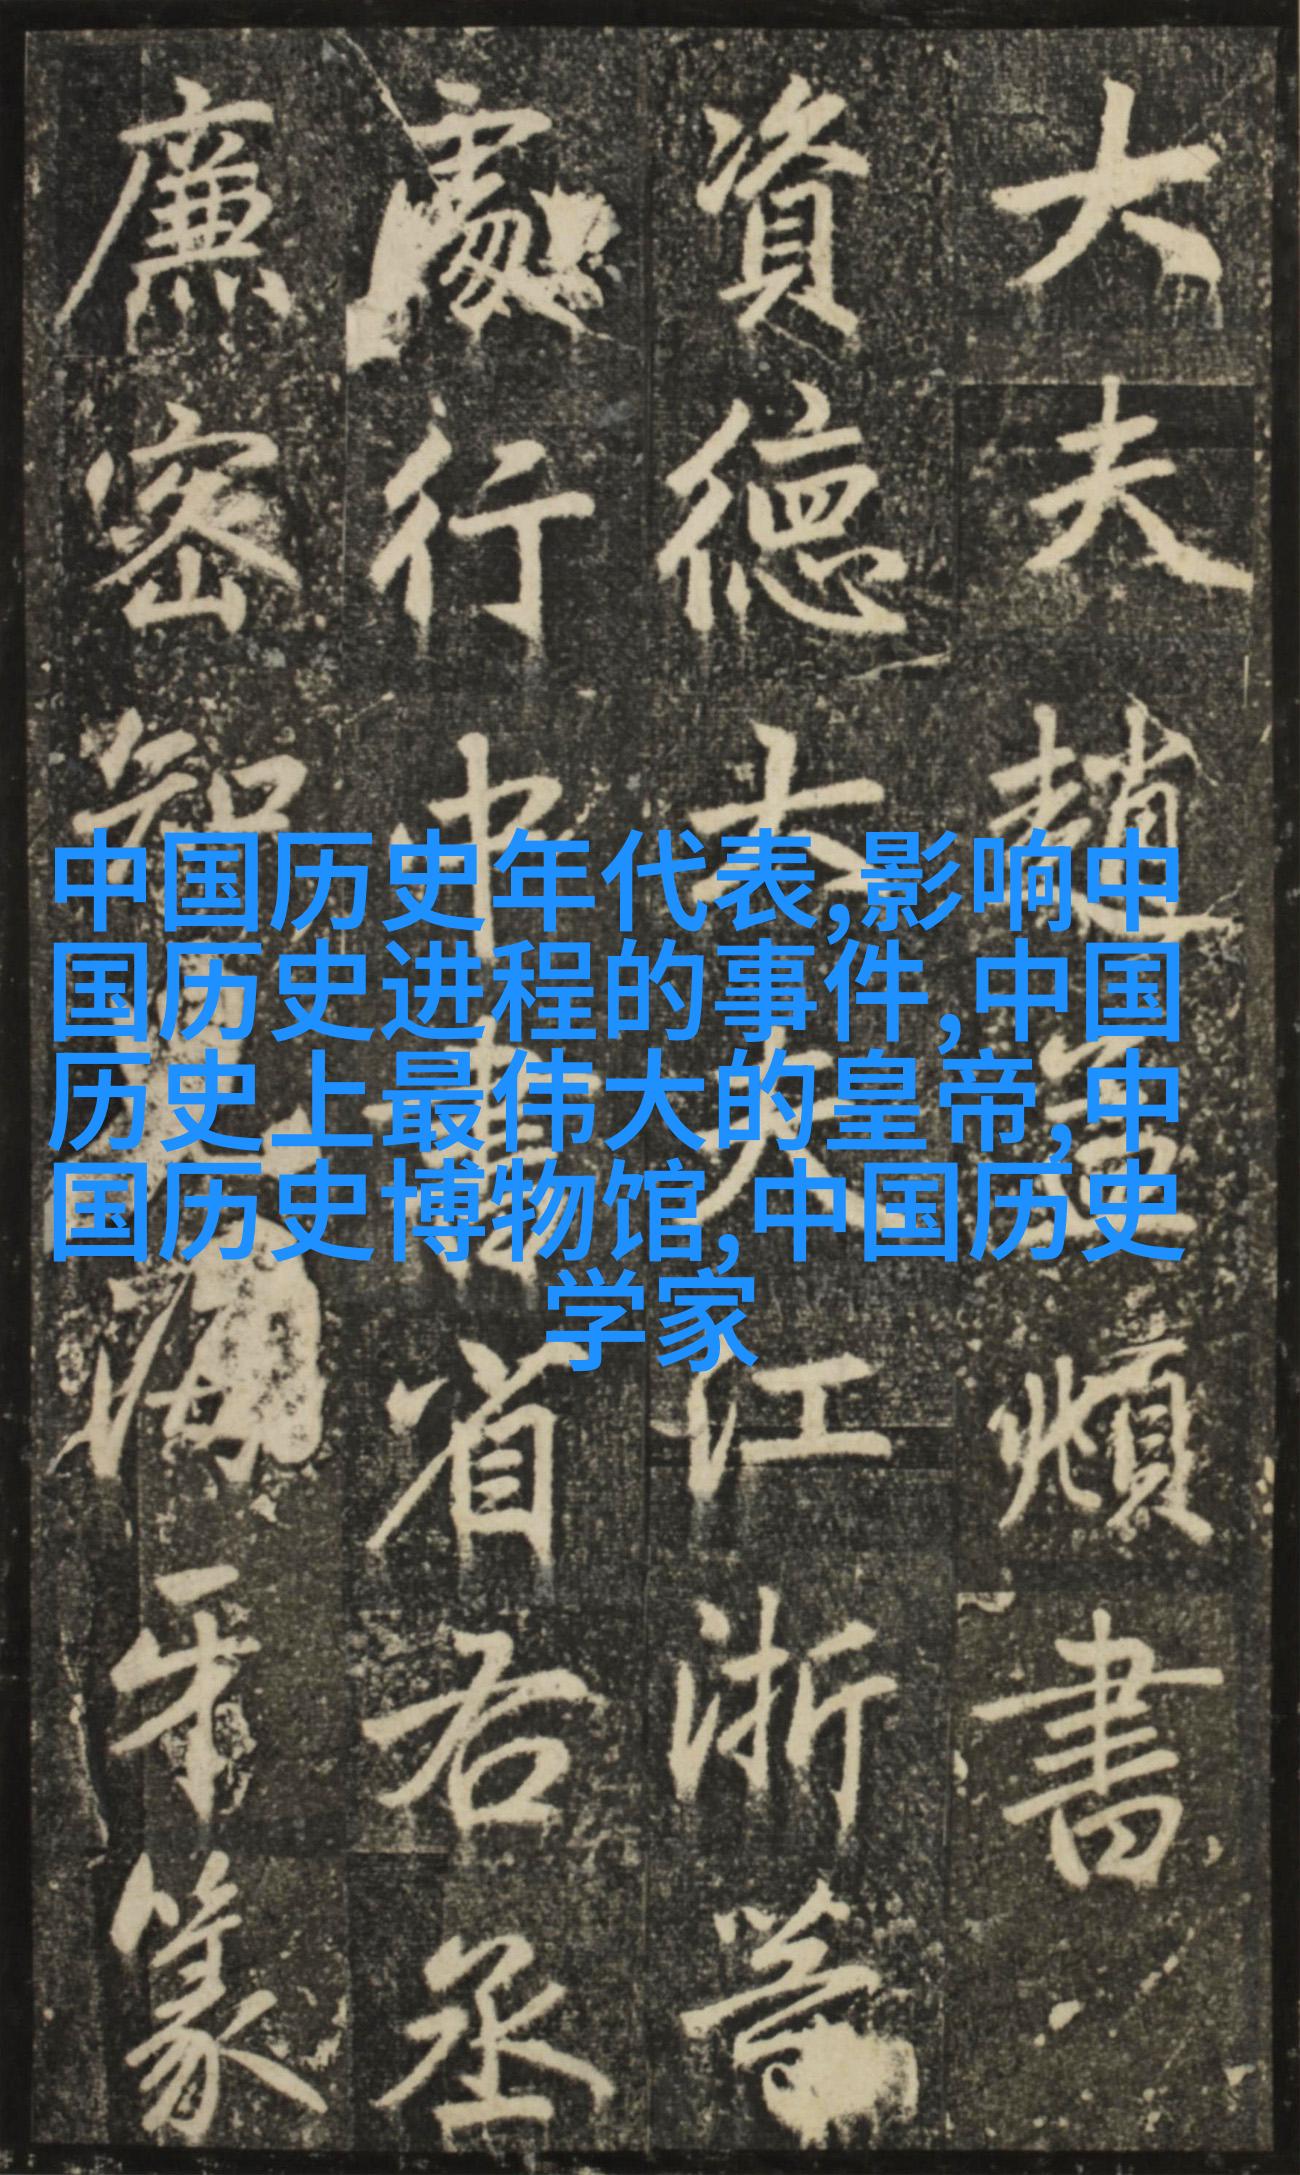 大夫趙孟頫書
資德大夫江浙等
處行中書省右丞
廉密知海牙篆
中国历史年代表,影响中
国历史进程的事件,中国
历史上最伟大的皇帝,中
国历史博物馆,中国历史
学家